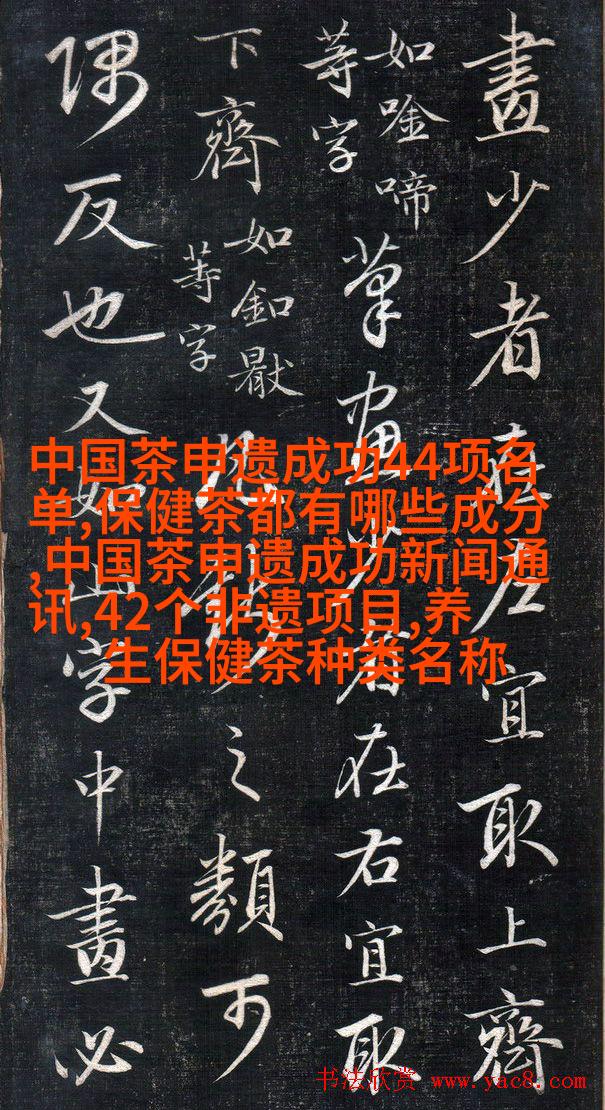 畫少者在左宜取上齊
如唫啼
等字
筆畫少者在右宜取
下齊
如釦
等字
之類可
隅反也又如山字中畫必
中国茶申遗成功44项名
单,保健茶都有哪些成分
,中国茶申遗成功新闻通
讯,42个非遗项目,养
生保健茶种类名称
书法欣赏 www.yac8.com